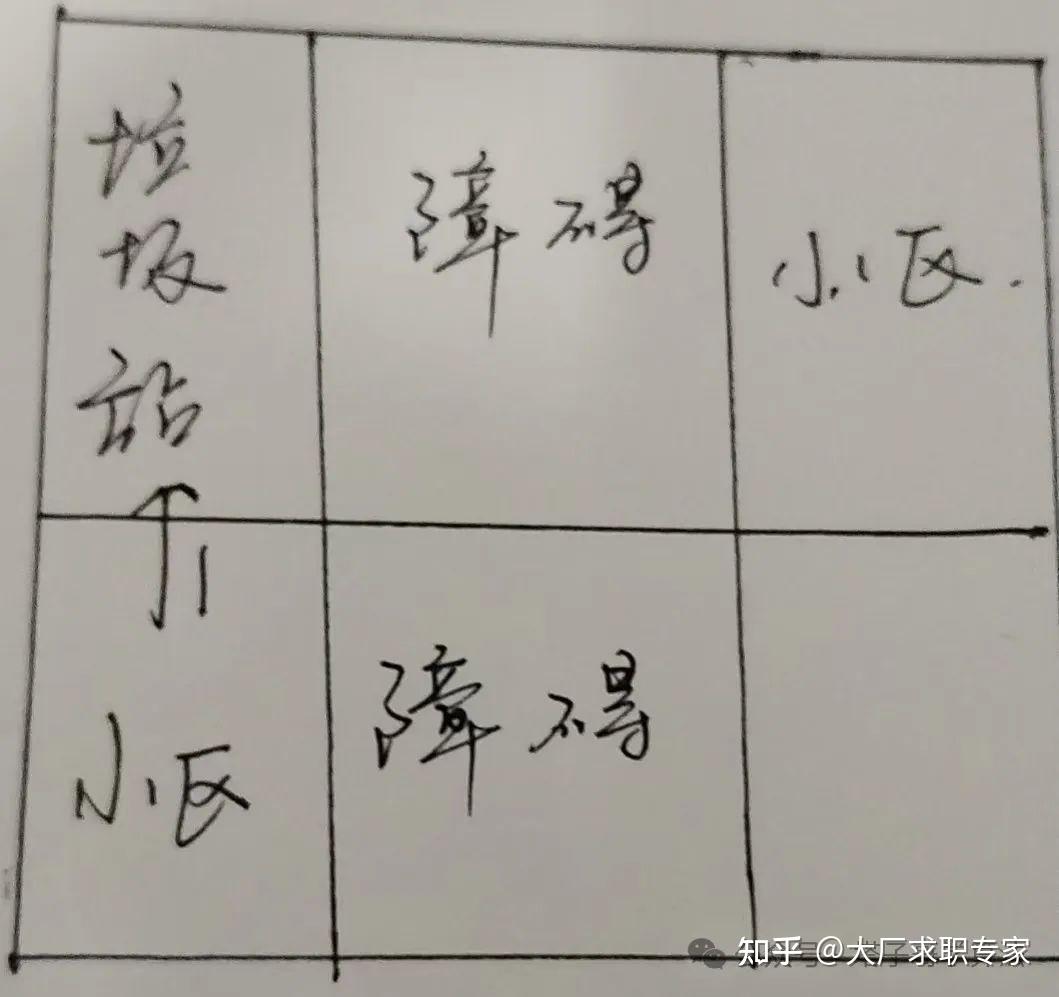 垃圾站
障碍
小区
小区
障碍
知乎 @大厂求职专家